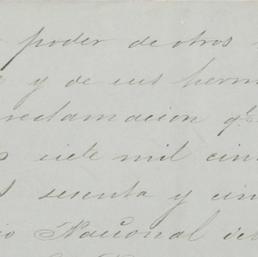 poder de otros
y de sus herm
reclamacion qe
siete mil cin
sesenta y cin
io Nacional de